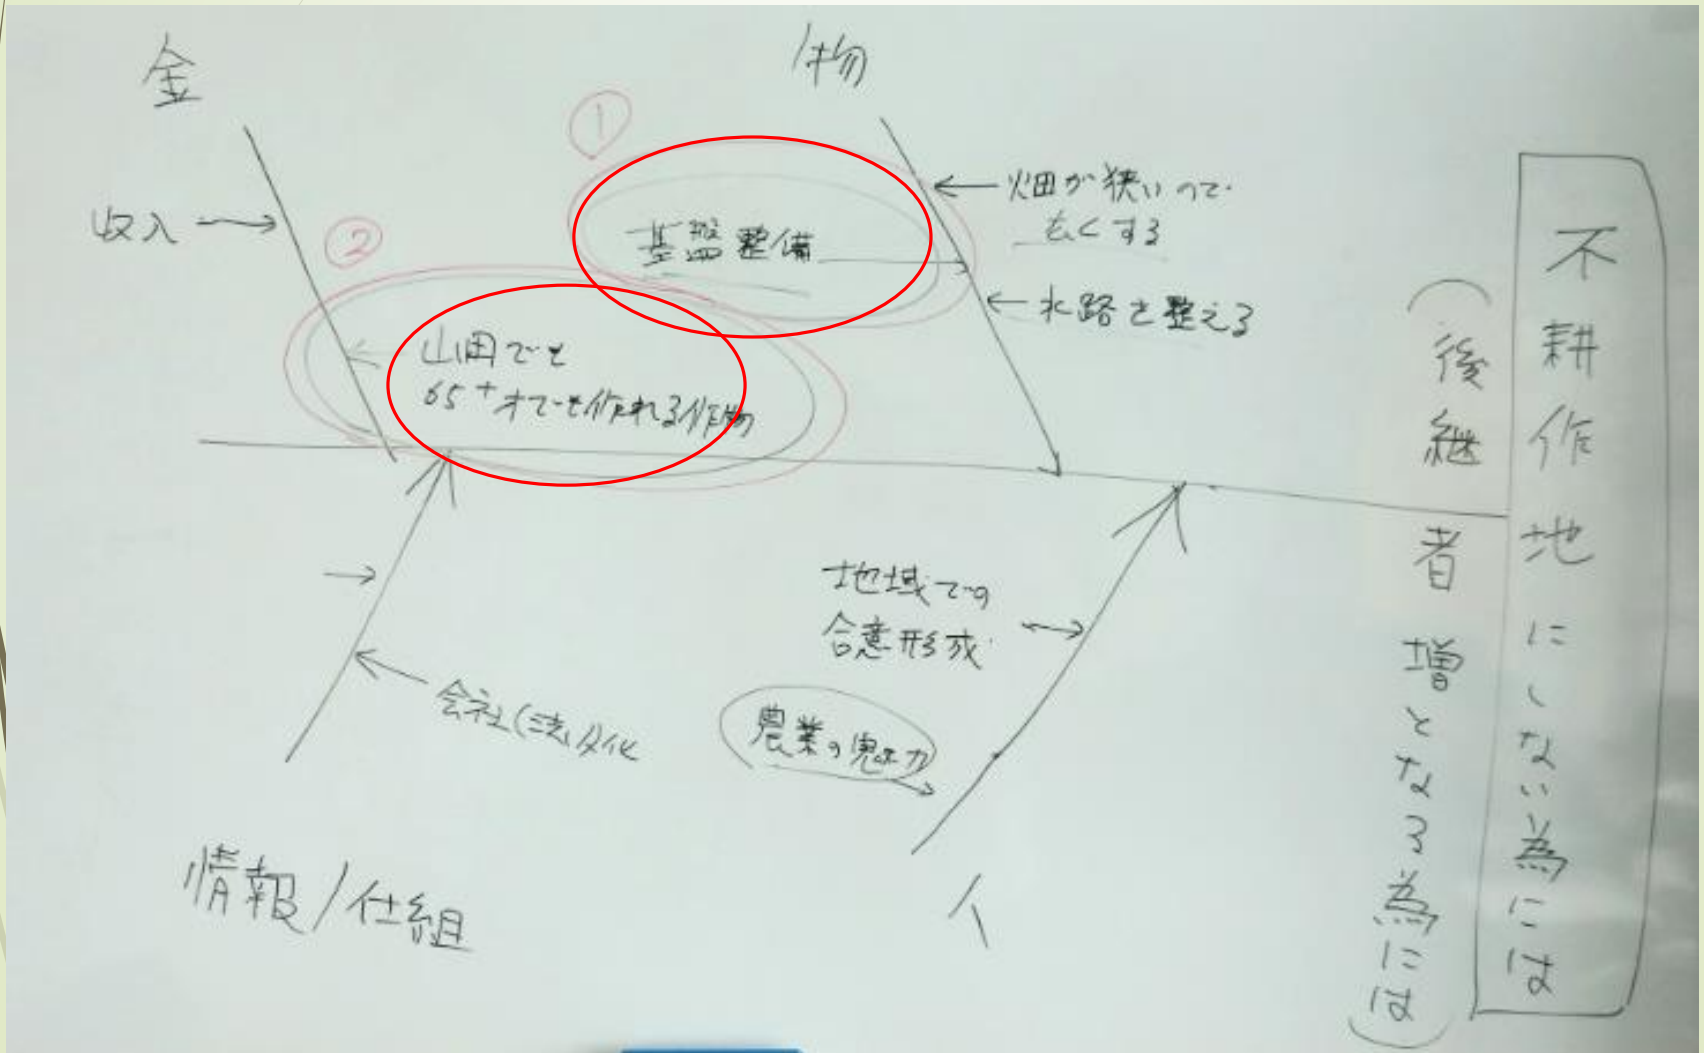 金
物
①
畑が狭いので
広くする
収入
②
基盤整備
水路を整える
山田でも
65才でも作れる作物
地域での
合意形成
会社(法人)化
農業の魅力
情報/仕組
人
不耕作地にしない為には
(後継者増となる為には)